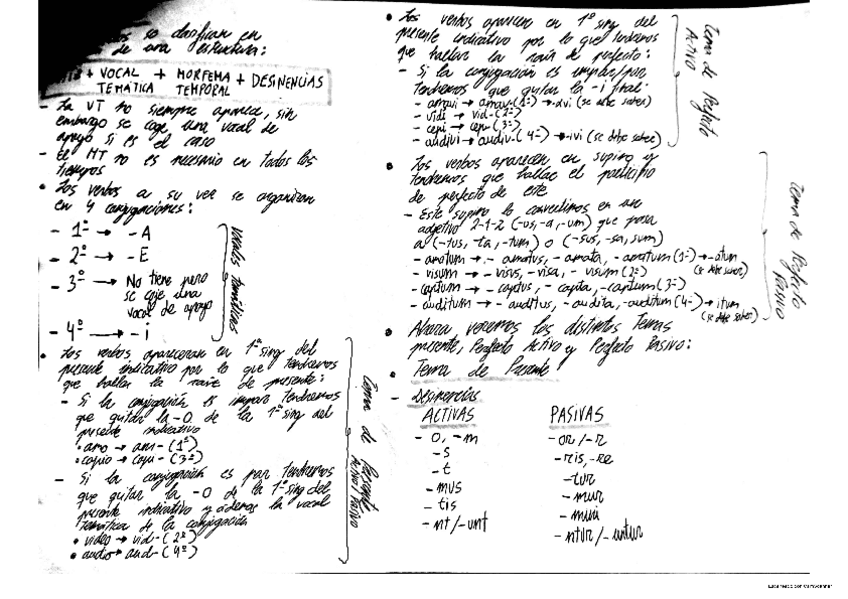 se clasifican en
de una estructura:
+ VOCAL TEMÁTICA + MORFEMA TEMPORAL + DESINENCIAS
- La VT no siempre aparece, sin
embargo se coge una vocal de
apoyo si es el caso
- El MT no es necesario en todos los
tiempos
• Los verbos a su vez se organizan
en 4 conjugaciones:
- 1º → -A
- 2º → -E
- 3º → No tiene pero
se coje una
vocal de apoyo
- 4º → -i
vocales temáticas
• Los verbos apareceran en 1º sing del
presente indicativo por lo que tendremos
que hallar la raíz de presente:
- Si la conjugación es impar tendremos
que quitar la -O de la 1º sing del
presente indicativo
• amo → am- (1º)
• capio → capi- (3º)
- Si la conjugación es par tendremos
que quitar la -O de la 1º sing del
presente indicativo y además la vocal
temática de la conjugación
• video → vid- (2º)
• audio → aud- (4º)
Tema de Presente
Activo/Pasivo
• Los verbos aparecen en 1º sing del
presente indicativo por lo que tendremos
que hallar la raíz de perfecto:
- Si la conjugación es impar/par
tendremos que quitar la -i final:
- amavi → amav- (1º) → -avi (se debe saber)
- vidi → vid- (2º)
- cepi → cep- (3º)
- audivi → audiv- (4º) → -ivi (se debe saber)
Tema de Perfecto
Activo
• Los verbos aparecen en supino y
tendremos que hallar el participio
de perfecto de este
- Este supino lo convertimos en un
adjetivo 2-1-2 (-us, -a, -um) que pasa
a (-tus, -ta, -tum) o (-sus, -sa, sum)
- amatum → - amatus, - amata, - amatum (1º) → -atum
(se debe saber)
- visum → - visus, - visa, - visum (2º)
- captum → - captus, - capta, - captum (3º)
- auditum → - auditus, - audita, - auditum (4º) → itum
(se debe saber)
Tema de Perfecto
Pasivo
• Ahora veremos los distintos Temas
presente, Perfecto Activo y Perfecto Pasivo:
• Tema de Presente
- Desinencias
ACTIVAS PASIVAS
- o, -m - or / -r
- s - ris, -re
- t - tur
- mus - mur
- tis - mini
- nt / -unt - ntur / -untur